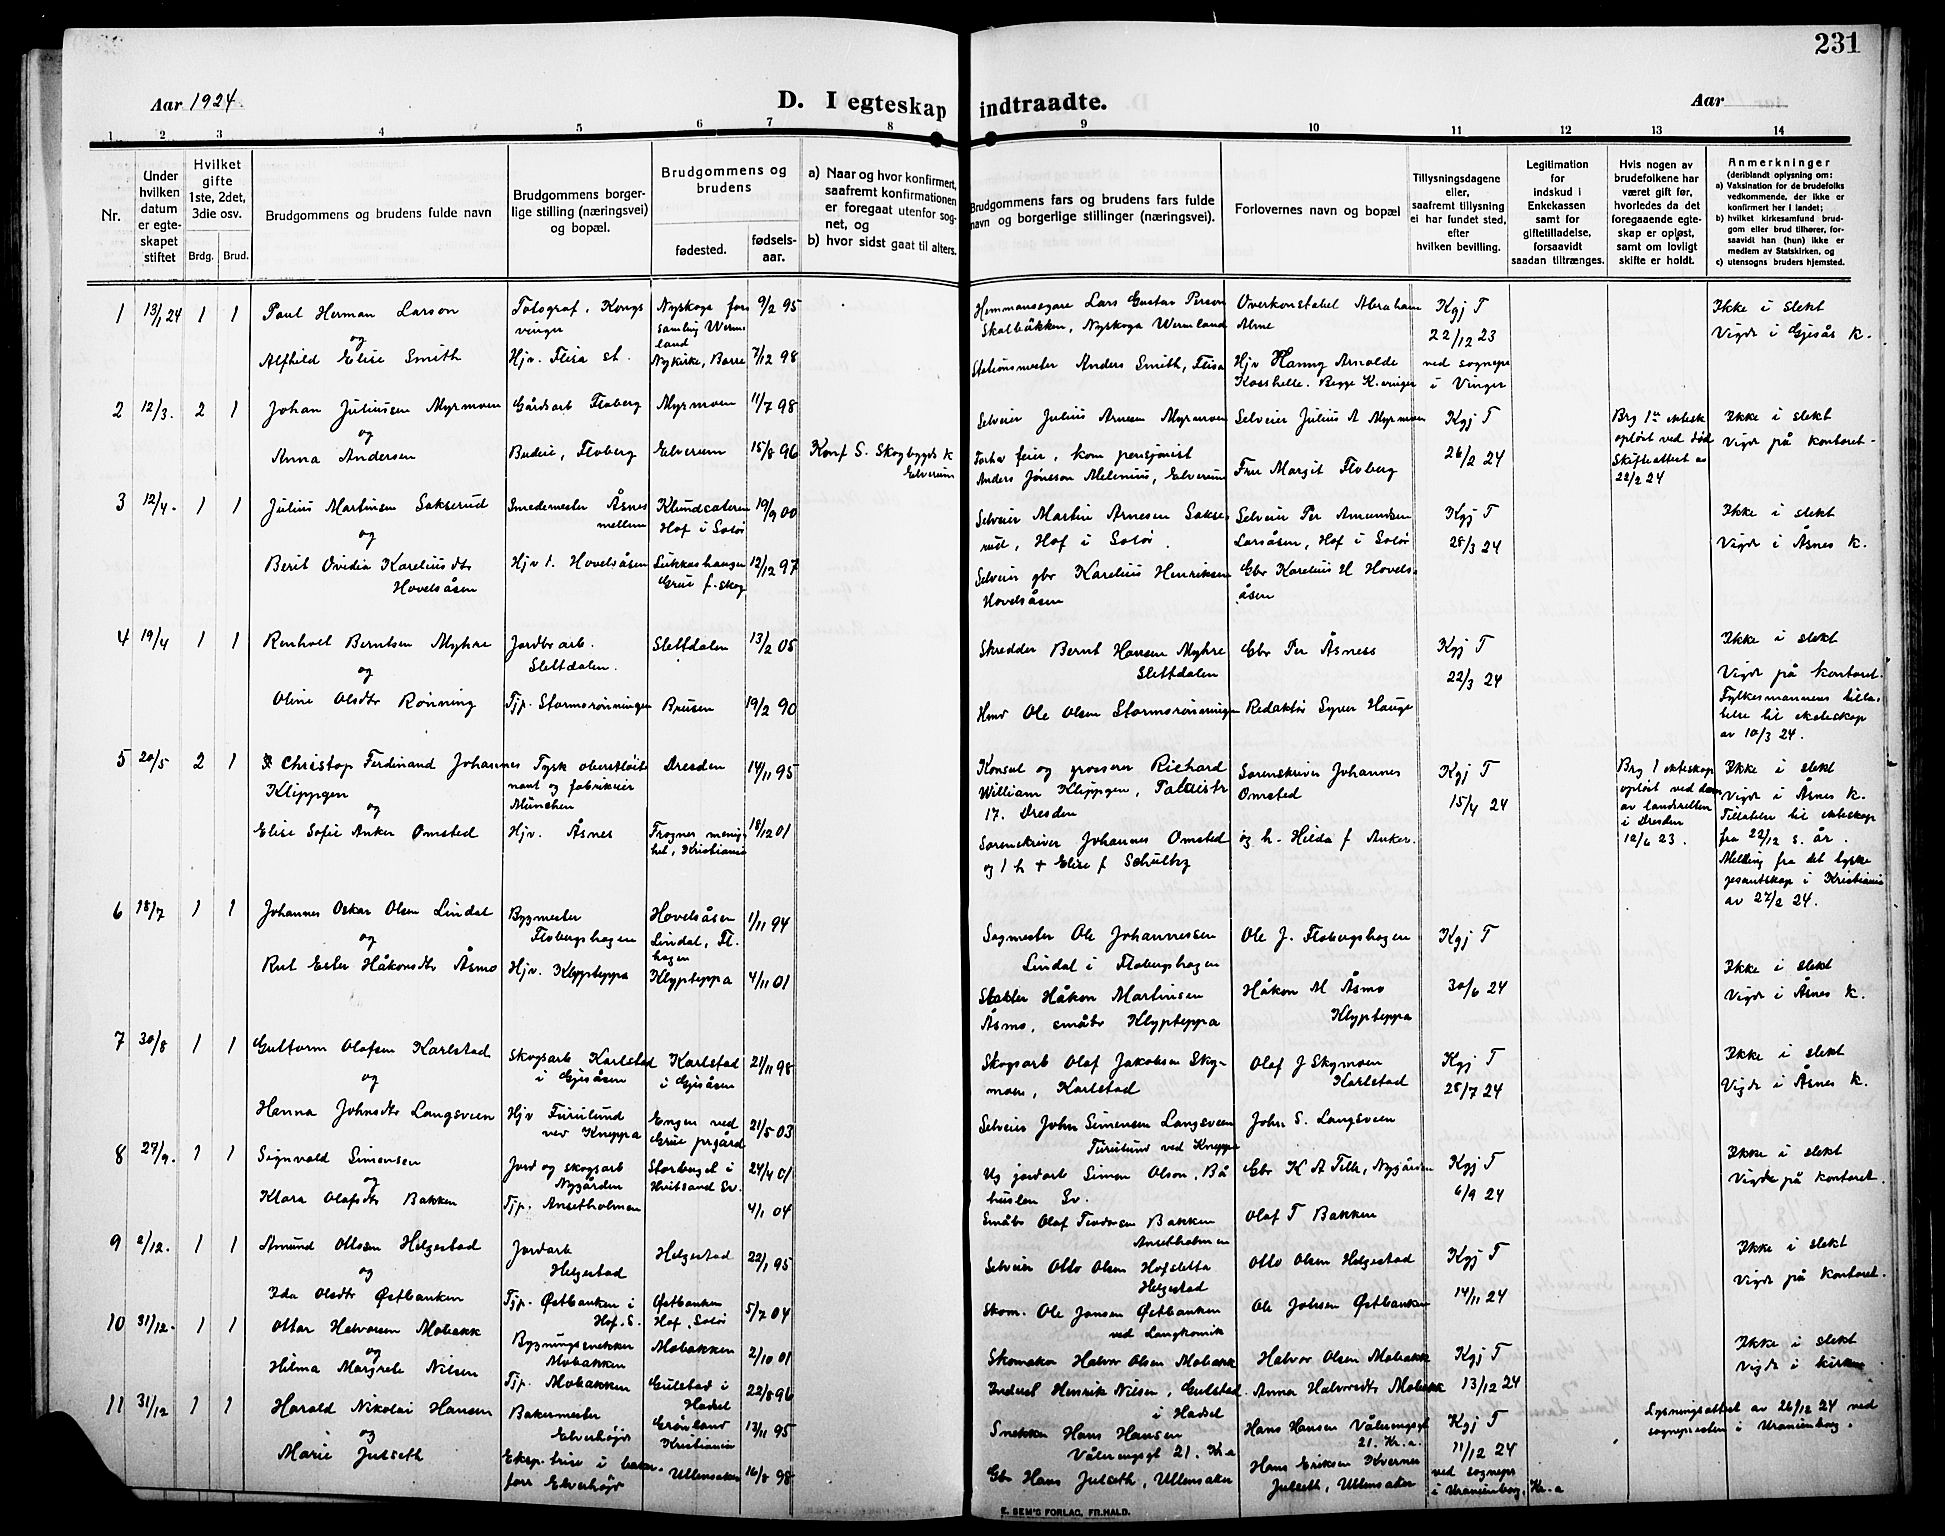 231
Aar 1924.
D. I egteskap indtraadte.
Aar
1 2 3 4 5 6 7 8 9 10 11 12 13 14
Nr.
Under hvilken datum er egteskapet stiftet
Hvilket gifte 1ste, 2det, 3die osv.
Brdg. Brud.
Brudgommens og brudens fulde navn
Brudgommens borgerlige stilling (næringsvei) og bopæl.
Brudgommens og brudens
fødested.
fødselsaar.
a) Naar og hvor konfirmert, saafremt konfirmationen er foregaat utenfor sognet, og
b) hvor sidst gaat til alters.
Brudgommens fars og brudens fars fulde navn og borgerlige stillinger (næringsvei).
Forlovernes navn og bopæl
Tillysningsdagene eller, saafremt tillysning ei har fundet sted, efter hvilken bevilling.
Legitimation for indskud i Enkekassen samt for giftetilladelse, forsaavidt saadan tiltrænges.
Hvis nogen av brudefolkene har været gift før, hvorledes da det foregaaende egteskap er opløst, samt om lovligt skifte er holdt.
Anmerkninger (deriblandt oplysning om:
a) Vaksination for de brudefolks vedkommende, der ikke er konfirmert her i landet;
b) hvilket kirkesamfund brudgom eller brud tilhører, forsaavidt han (hun) ikke er medlem av Statskirken, og
c) utensogns bruders hjemsted.
1 13/1 24 1 1 Paul Herman Larson
og
Alfhild Elise Smith
Fotograf, Kongsvinger
Hjv. Flisa st.
Nyskoga forsamling Wermland
Nykirke, Borre
9/2 95
7/12 98
Hemmansegare Lars Gustav Person
Skalbäkken, Nyskoga Wermland
Stationsmester Anders Smith, Flisa
Overkonstabel Abraham Alme
Hjv Hanny Arnolde
Kgj T
22/12 23
ved sognepr
i Vinger
Ikke i slekt
Vigde i Gjesås K.
2 12/3. 2 1 Johan Juliussen Myrmoen
og
Anna Andersen
Gårdsarb Floberg
Budeie, Floberg
Myrmoen
Elverum
11/7 98
15/8 96
Konf S. Skogbygds K
Elverum
Selveier Julius Arnesen Myrmoen
forhv feier, kom pensjonist
Anders Jönsson Melenius, Elverum
Selveier Julius A Myrmoen
Fru Margit Floberg
Kgj T
26/2 24
Brg 1ste ekteskap
opløst ved død
Skifteattest av
22/2 24
Ikke i slekt
Vigde på kontoret
3 12/4. 1 1 Julius Martinsen Sakserud
og
Berit Ovidia Kareliusdtr
Hovelsåsen
Smedemester Åsnes
mellem
Hjv t. Hovelsåsen
Klundsæteren
Hof i Solør
Lukkashaugen
Grue f. skog
19/9 00
12/12 97
Selveier Martin Arnesen Sakserud, Hof i Solør.
Selveier gbr Karelius Henriksen
Hovelsåsen
Selveier Per Amundsen
Larsåsen, Hof i Solør
Gbr Karelius H Hovelsåsen
Kgj T
28/3 24
Ikke i slekt
Vigde i Åsnes K.
4 19/4 1 1 Renholt Berntsen Myhre
og
Oline Olsdtr Rønning
Jordbrarb.
Slettdalen.
Tjp. Stormsrønningen
Slettdalen
Breisen
13/2 05
19/2 90
Skredder Bernt Hansen Myhre
Slettdalen
Hmd Ole Olsen Stormsrønningen
Gbr Per Åsness
Redaktør Syver Hauge
Kgj T
22/3 24
Ikke i slekt
Vigde på kontoret.
Fylkesmannens tilla-
telse til ekteskap
av 10/3 24.
5 20/5 2 1 Christop Ferdinand Johannes
Klippgen
og
Elise Sofie Anker Omsted
Tysk oberstløitnant og fabrikeier
München
Hjv. Åsnes
Dresden
Frogner menighet, Kristiania
14/11 95
18/12 01
Konsul og grosserer Richard
William Klippgen,
17. Dresden
Sorenskriver Johannes Omsted
og 1 h + Elise f Schulby
Sorenskriver Johannes
Omsted
og h. Hilda f Anker.
Kgj T
15/4 24
Brg 1 ekteskap
opløst ved dom
av landretten
i Dresden
12/6 23.
Ikke i slekt
Vigde i Åsnes K.
Tillatelse til ekteskap
fra 22/12 s. år.
Melding fra det tyske
gesantskap i Kristiania
av 27/2 24.
6 18/7 1 1 Johannes Oskar Olsen Lindal
og
Rut Ester Håkonsdtr Åsmo
Bygmester
Flobergshagen
Hjv. Klypteppa
Hovelsåsen
Lindal, Fl.
hagen
Klypteppa
1/11 94
4/11 01
Sagmester Ole Johannessen
Lindal i Flobergshagen
Håkon Martinsen
Åsmo, småbr Klypteppa
Ole J. Flobergshagen
Håkon M Åsmo
Klypteppa
Kgj T
30/6 24
Ikke i slekt
Vigde i Åsnes K.
7 30/8 1 1 Guttorm Olafsen Karlstad
og
Hanna Johnsdtr Langsveen
Skogsarb Karlstad
i Gjesåsen
Hjv Furulund
ved Kneppa
Karlstad
i Gjesåsen
Engen ved
Grue prgård
21/11 98
21/5 03
Skogsarb Olaf Jakobsen Skymoen, Karlstad
Selveier John Simensen Langsveen
Furulund ved Kneppa
Olaf J Skymoen
Karlstad
John S. Langsveen
Kgj T
28/7 24
Ikke i slekt
Vigde i Åsnes K.
8 27/9. 1 1 Signvald Simensen
og
Klara Olafsdtr Bakken
Jord og skogsarb
Nygården
Tjp. Ansetholmen
Storberget i
Hvitsand Sv.
24/4 01
4/1 04
Ug jordarb Simen Olson, Båhuslen Sv.
Småbr Olaf Teodorsen Bakken
Ansetholmen
Gbr K A Feth, Nygården
Olaf T Bakken
Kgj T
6/9 24
Ikke i slekt
Vigde på kontoret.
9 2/12. 1 1 Amund Ottosen Helgestad
og
Ida Olsdtr Østbanken
Jordarb
Helgestad
Tjp. Østbanken i
Hof. S.
Helgestad
Østbanken
Hof, Solør
22/1 95
5/7 04
Selveier Otto Olsen Hofsletta
Helgestad
Skom. Ole Jansen Østbanken
ved Langkomik
Otto Olsen Helgestad
Ole Johsen Østbanken
Kgj T
14/11 24
Ikke i slekt
Vigde på kontoret.
10 31/12. 1 1 Ottar Halvorsen Mobakk
og
Hilma Margrete Nilsen
Bygningssnekker
Mobakken
Tjp. Mobakken
Mobakken
Gulstad i
Hadsel
2/10 01
22/8 96
Skomaker Halvor Olsen Mobakk
Inderst Henrik Nilsen, Gulstad
i Hadsel
Halvor Olsen Mobakk
Anna Halvorsdtr Mobakk
Kgj T
13/12 24
Ikke i slekt
Vigde i kirken
11 31/12 1 1 Harald Nikolai Hansen
og
Marie Julseth
Bakermester
Elverhøy
Eksp.trise i baker-
forr Elverhøy
Grønland
Kristiania
Ullensaker
13/11 95
16/8 98
Snekker Hans Hansen
Vålerengsgt 21. Kr.a
Gbr Hans Julseth, Ullensaker
Hans Hansen Vålerengsgt
21. Kr.a.
Hans Eriksen Kverner
Julseth, Ullensaker
Kgj T
11/12 24
ved sognepr
i Uranienborg, Kr.a
Lysningsattest av 26/12 24 ved
sognepresten i Uranienborg.
E. SEM'S FORLAG, FR.HALD.